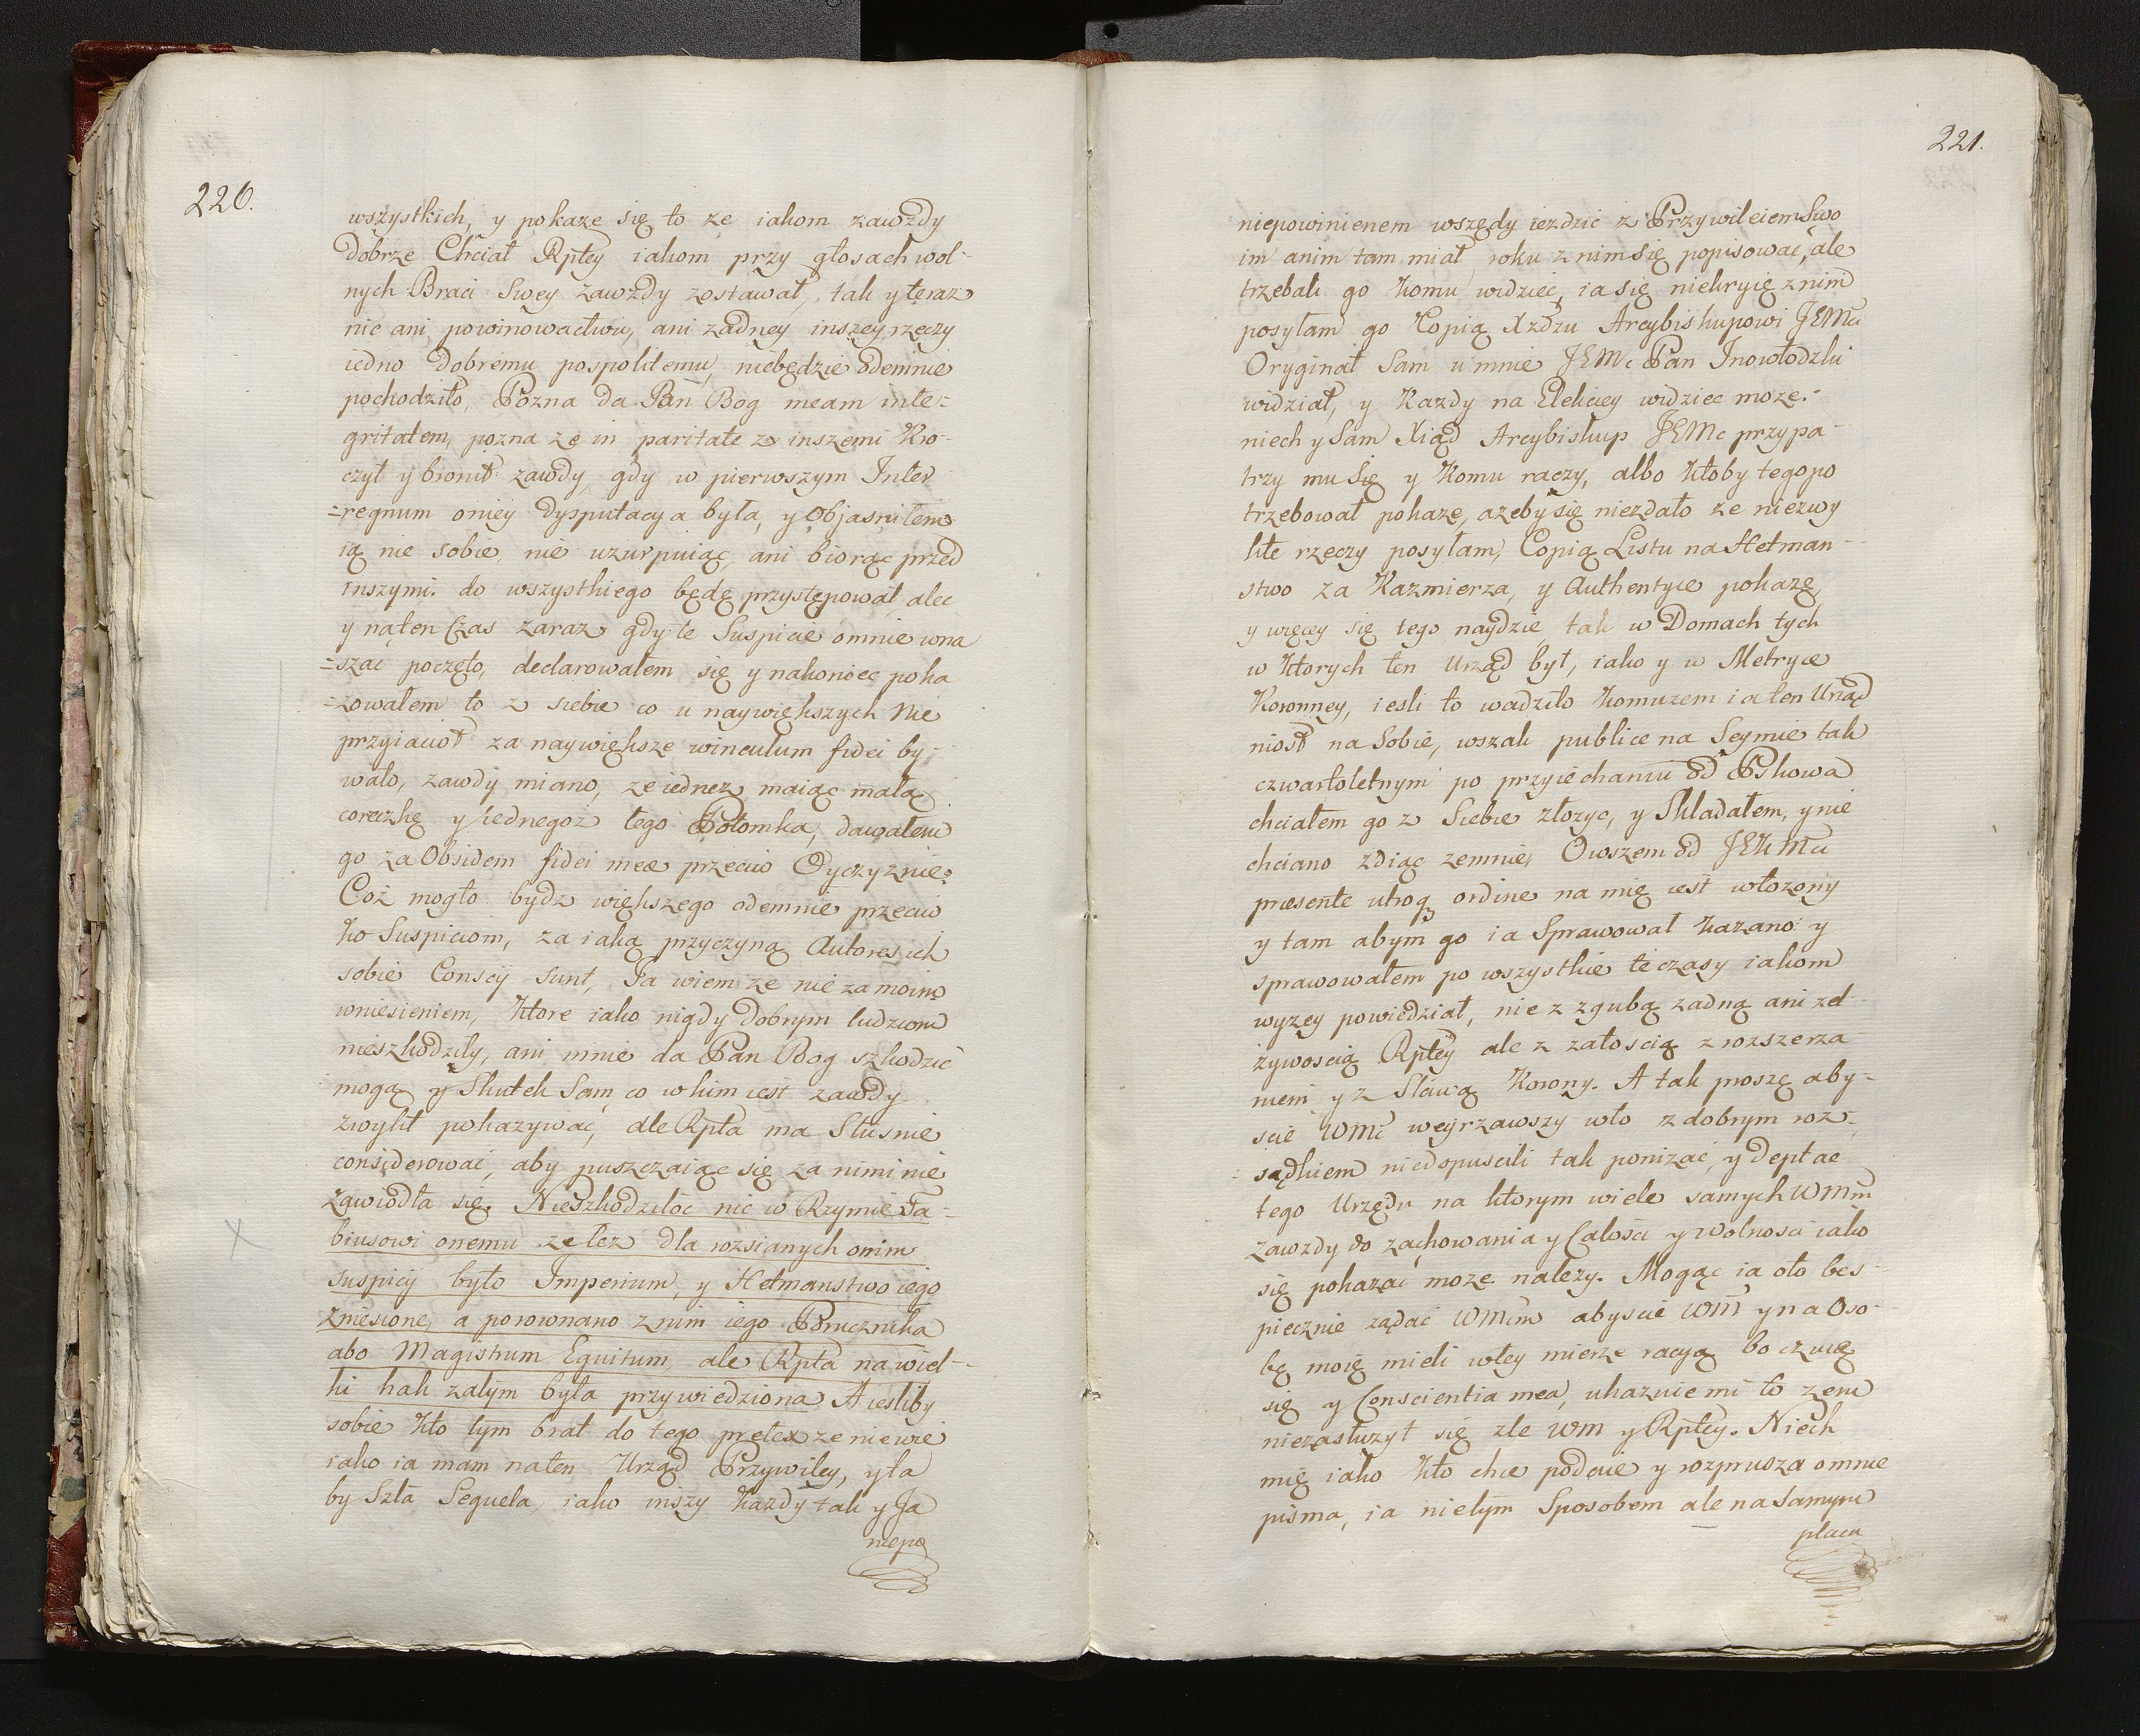 220.
wszystkich, y pokaze się to ze iakom zawżdy
dobrze Chciał Rpltey iakom przy głosach wol-
nych Braci Swey zawżdy zostawał, tak y teraz
nic ani powinowactwu, ani zadney inszey rzeczy
iedno dobremu pospolitemu, niebędzie odemnie
pochodziło, Pozna da Pan Bog meam inte-
gritatem, pozna ze in paritate z inszemi Kro-
czył y bronił zawdy, gdy w pierwszym Inter
=regnum oniey dysputacya była, y Objasniłem
ią nie sobie nie uzurpuiąc, ani biorąc przed
inszymi. do wszystkiego będę przystępował alec
y naten Czas zaraz gdy te Suspicie omnie wna
=szać poczęto, declarowałem się y nakoniec poka
=zowałem to z siebie co u naywiększych Nie
przyiacioł za naywiększe winculum fidei by-
wało, zawdy miano, ze iednez maiąc małą
coreczkę y iednegoz tego Potomka, dawałem
go za Obsidem fidei mea przeciw Oyczyznie.
Coż mogło bydz większego odemnie przeciw
ko Suspiciom, za iaką przyczyną Autores ich
sobie Conscij sunt, Ja wiem ze nie za moim
wniesieniem, Ktore iako nigdy dobrym ludziom
nieszkodziły, ani mnie da Pan Bog szkodzić
mogą y Skutek Sam co w kim iest zawdy
zwykł pokazywać, ale Rpta ma Słusnie
considerować, aby puszczaiąc się za nimi nie
zawiodła się. Nieszkodziłoć nic w Rzymie Fa-
biusowi onemu ze tez dla rozsianych onim
suspicij było Imperium, y Hetmanstwo iego
zniesione, a porownano znim iego Porucznika
abo Magistrum Equitum, ale Rpta nawiel-
ki hak zatym była przywiedziona A iesliby
sobie Kto tym brał do tego pretex ze niewie
iako ia mam naten Urząd Przywiley, y ta
by Szła Sequela, iako inszy Kazdy tak y Ja
niepo
221.
niepowinienem wszędy iezdzic z Przywileiem Swo
im anim tam miał roku znim się popisować, ale
trzebali go Komu widzieć, ia się niekryię znim
posyłam go Kopią Xzdzu Arcybiskupowi JEMci
Oryginał Sam u mnie JEMc Pan Inowłodzki
widział, y Kazdy na Elekciey widziec moze.
niech y Sam Xiądz Arcybiskup JEMc przypa-
trzy mu się y Komu raczy, albo Ktoby tego po
trzebował pokaze, azeby się niezdało ze niezwy
kłe rzeczy posyłam, Copią Listu na Hetman-
stwo za Kazmierza, y Authentyce pokazę,
y więcey się tego naydzie, tak w Domach tych
w Ktorych ten Urząd był, iako y w Metryce
Koronney, iesli to wadziło Komuzem ia ten Urząd
niosł na Sobie, wszak publice na Seymie tak
czwartoletnym po przyiechaniu od Pskowa
chciałem go z Siebie złozyc, y Składałem, y nie
chciano zdiąc zemnie, Owszem od JEKMci
præsente utroq ordine na mię iest włozony
y tam abym go ia Sprawował kazano y
sprawowałem po wszystkie te czasy iakom
wyzey powiedział, nie z zgubą zadną ani zel-
żywoscią Rpltey ale z załoscią z rozszerza-
niem y z Sławą Korony. A tak proszę aby-
scie WMć weyrzawszy wto z dobrym roz-
sądkiem niedopuscili tak ponizać, y deptac
tego Urzędu na ktorym wiele samych WMm
zawzdy do zachowania y Całosci y wolnosci iako
się pokazać moze nalezy. Mogąc ia oto bes-
piecznie ządać WMćm abyscie WM y na Oso-
bę moię mieli wtey mierze racyą bo czuię
się y Conscientia mea, ukazuie mi to zem
niezasłuzył się zle WM y Rpltey. Niech
mię iako Kto chce podeie y rozprusza omnie
pisma, ia nietym Sposobem ale na samym
placu